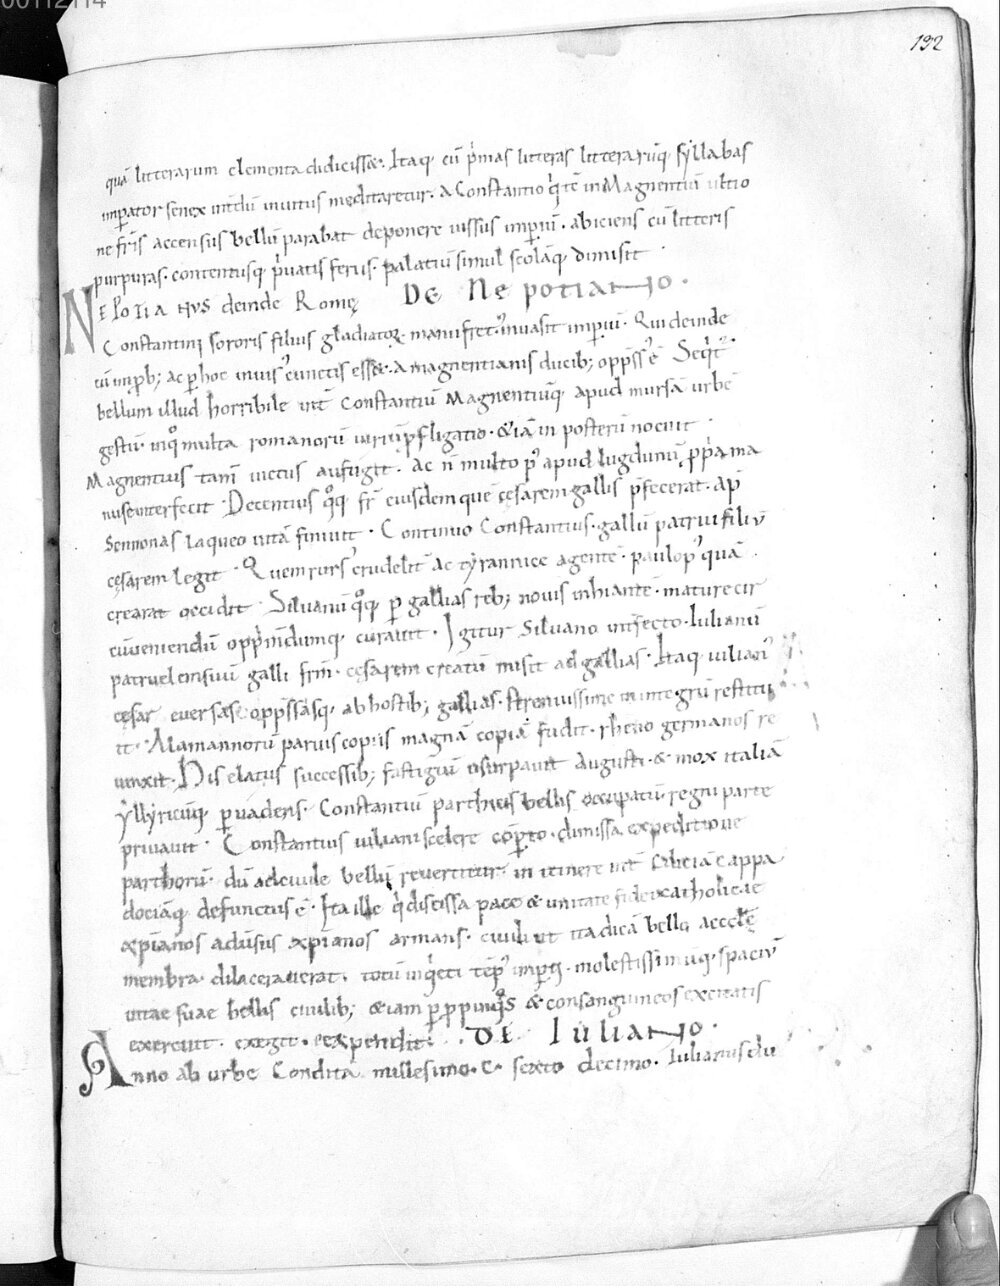 00112114
192
quā litterarum elementa didicisse. Itaq; cū p̄mas litteras litterarūq; syllabas
imperator senex inuitus meditaretur. a Constantio q̄ tē in Magnentiū ultio
ne fr̄is accensus bellū parabat deponere iussus imperiū. abiciens cū litteris
purpuras. contentusq; p̄uatis feriis. palatiū simul scolāq; dimisit.
NEPOTIANVS deinde Romę DE NEPOTIANO.
Constantini sororis filius gladiatorū manu fretus inuasit imperiū. Qui deinde
cū improb; ac ꝑ hoc inuisus cunctis esset. a magnentianis ducib; opp̄ssus ē. Seq̄t
bellum illud horribile int̄ Constantiū Magnentiūq; apud mursā urbē
gestū. inq̊ multa romanorū uiriū ꝓfligatio. & iā in posterū nocuit.
Magnentius tam̄ uictus aufugit. ac n̄ multo p̊ apud lugdunū ꝓpria ma
nu se interfecit. Decentius q̊q; fr̄ eiusdem quē cęsarem gallis p̄fecerat. ap̄
Sennonas laqueo uitā finiuit. Continuo Constantius. gallū patrui filiū
cęsarem legit. Quem rursus crudelit̄ ac tyrannice agentē. paulo p̊ quā
crearat occidit. Siluanū q̊q; ꝑ gallias reb; nouis inhiantē. mature cir
cūueniendū opp̄mendumq; curauit. Igitur Siluano int̄fecto. Iulianū
patruelem suū galli frm̄. cęsarem creatū misit ad gallias. Itaq; iulianus
cęsar euersas opp̄ssasq; ab hostib; gallias. strenuissime in integrū restitu
it. Alamannorū paruis copiis magnā copiā fudit. rheno germanos re
uinxit. His elatus successib; fastigiū usurpauit Augusti. & mox italiā
yllyricūq; ꝑuadens. Constantiū parthicis bellis occupatū. regni parte
priuauit. Constantius iuliani scelere cōperto. dimissa expeditione
parthorū. dū ad ciuile bellū reuertitur. in itinere int̄ Ciliciā cappa
dociāq; defunctus ē. Ita ille q̄ discissa pace & unitate fidei catholicae
xp̄ianos aduersus xp̄ianos armans. ciuili ut ita dicā bello aecclę
membra dilacerauerat. totū inq̄eti tēp̊ imperii. molestissimūq; spaciū
uitae suae bellis ciuilib; & iam ꝑ ꝓpinq̊s & consanguineos excitatis
exercuit. exegit. expendit. DE IULIANO.
Anno ab urbe Condita millesimo. C. sexto decimo. Iulianus du